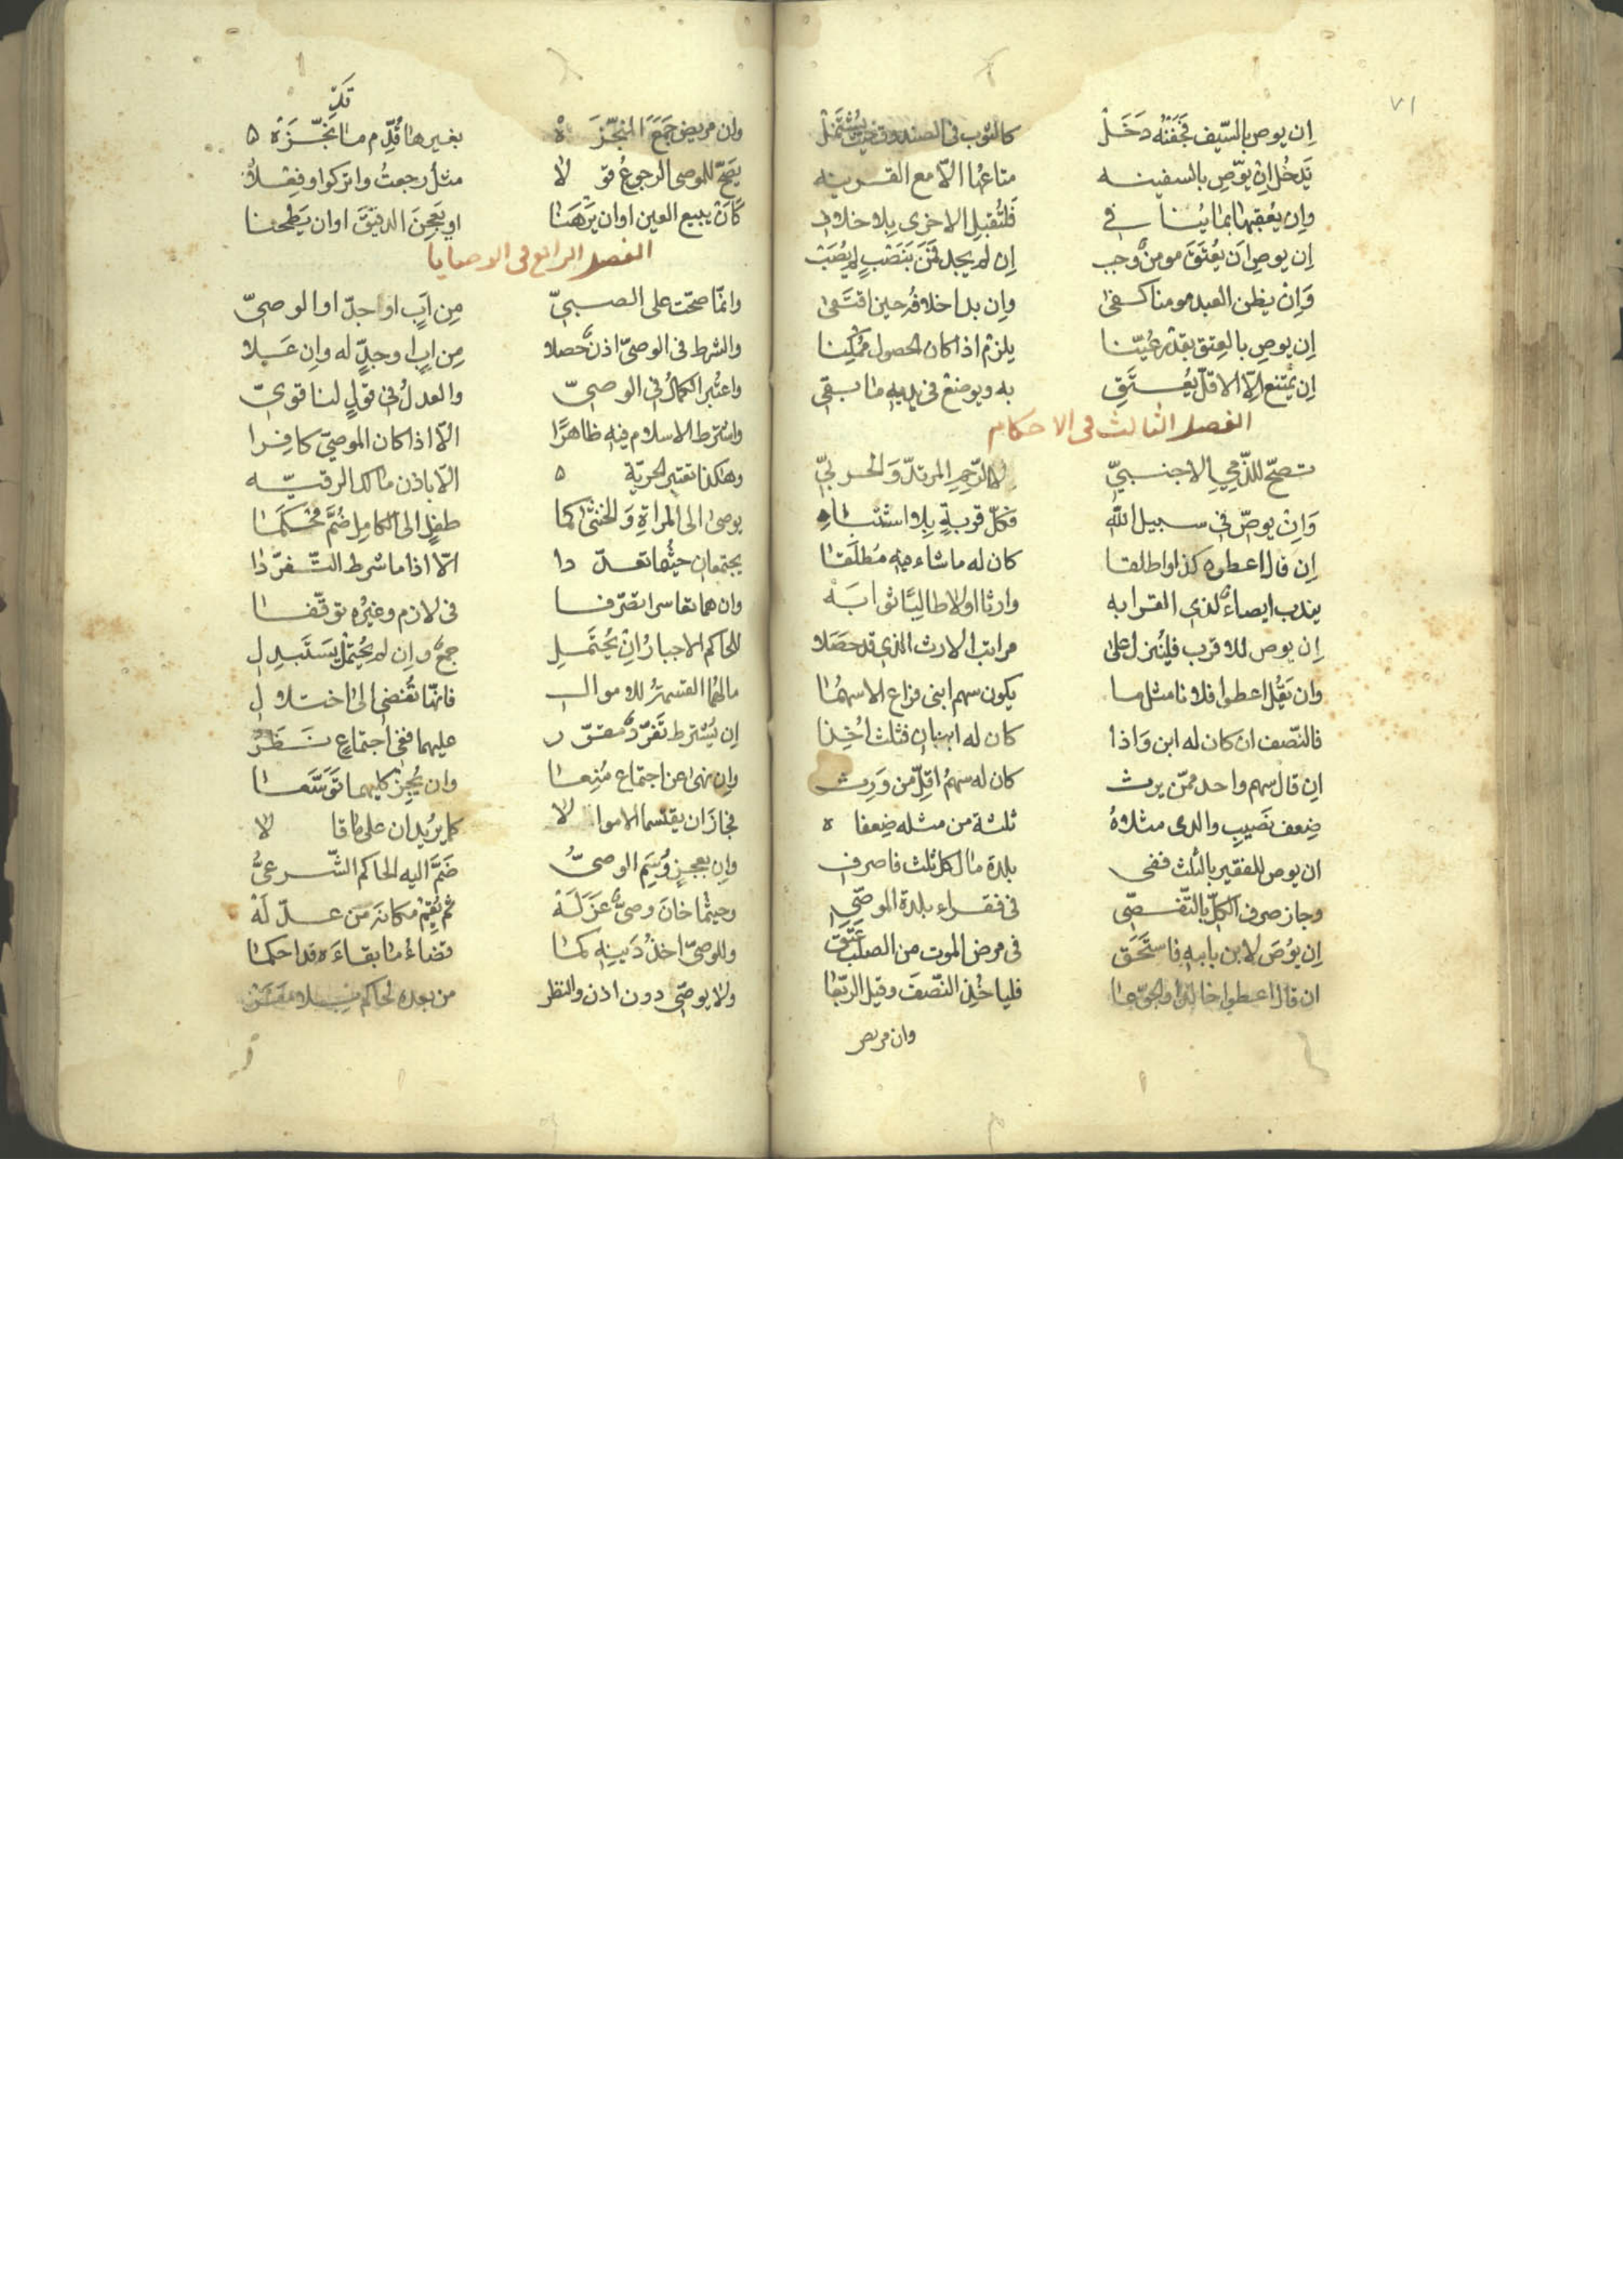 ٧١
إن يوص بالسّيف فجفنُه دَخَلْ كالثوب في الصندوق حيث يشتملْ
يَدخُل إنْ يوصِ بالسفينه متاعُها الّا مع القرينه
وإن يعقبها بما ينافي فلتُقبلِ الاخرى بلا خلاف
إن يوصِ ان يُعتَقَ مومنٌ وجب إن لم يجد فمَن بنَصْبٍ لم يُصَبْ
وَإنْ يظن العبد مومنا كفى وإن بدا خلافُه حين اقتفى
إن يوصِ بالعِتق بقدْرٍ عُيّنا يلزمْ اذا كان الحصول مُمكِنا
إن يمتنع إلّا الاقلّ يُعتَقِ به ويوضَعْ في يديه ما بقي
الفصل الثالث في الاحكام
تصحّ للذّمي الاجنبيّ لا الرّحِمِ المرتدّ وَالحربيّ
وَإنْ يوصّ في سبيل الله فكلّ قربةٍ بلا اشتباه
إن قال اعطوه كذا واطلقا كان له ما شاء فيه مُطلَقا
يندب ايصاءٌ لذي القرابه وارثا اولا طالبًا ثوابَهْ
إن يوص للاقرب فليُنزل على مراتب الارث الذي قد حصَلا
وان يَقُل اعطوا فلانا مثل ما يكون سهم ابني فراع الاسهُما
فالنّصف ان كان له ابن وَاذا كان له ابنان فثلث اُخِذا
إن قال سهم واحد ممّن يرث كان له سهمُ اقلّ من وَرِث
ضِعف نَصيبِ والدي مثلاهُ ثلثة من مثله ضِعفاه
ان يوص للفقير بالثلث ففي بلدة مال كل ثلث فاصرف
وجاز صرف الكلّ بالتّفصّي في فقراء بلدة الموصّي
إن يوُصَ لابن بابيه فاستَحَق في مرض الموت من الصلب عَتَق
ان قال اعطوا خالدا والجى معا فلياخُذِ النّصفَ وقيل الرّبعا
وان مريض
وان مريض جَمَعَ المنجّزَه بغيرها قُدِّم ما قد نجّزَهْ
يصحّ للموصي الرجوعُ قولا مثل رجعتُ واتركوا وفِعْلا
كَأنْ يبيع العين او ان يَرهَنا او يَعجِنَ الدقيقَ او ان يَطحنا
الفصل الرابع في الوصايا
وانمّا صحّت على الصبيّ مِن اَبٍ او جدّ او الوصيّ
والشرط في الوصيّ اذنٌ حصلا مِن ابٍ او جدٍّ له وإن عَلا
واعتُبر الكمالُ في الوصيّ والعدلُ في قولٍ لنا قويّ
واشترط الاسلام فيه ظاهرًا الّا اذا كان الموصيّ كافِرا
وهكذا تعتبر الحريّة الّا باذن مالك الرقيّه
يوصى الى المراةِ وَالخنثى كما طفلٍ الى الكامِل ضُمَّ مُحكَما
يجتمعان حيثُما تعدّدا الّا اذا ما شرط التّفرّدا
وان هما تعاسرا تصرّفا في لازم وغيرُه توقّفا
للحاكم الاجبارُ انْ يُحتَمَلِ جمعٌ وإن لم يُحتملْ يستَبدِلِ
مالهُما القسمةُ للاموال فانهّا تُفضي الى اختلال
إن يُشترط تَفرّدٌ مقرّر عليهما ففي اجتماعٍ نَظَرٌ
وإن نهى عن اجتماع مُنِعا وان يُجِزْ كليهما تَوَسَّعا
فجازَ ان يقتسما الاموالا كما يريدان على ما قالا
وإن بعجزٍ وُسِمَ الوصيُّ ضَمَّ اليه الحاكم الشّرعيُّ
وحيثما خانَ وصيٌّ عَزَلَهْ ثم يُقِمْ مكانه مَن عدّلَهْ
وللوصيّ اخذُ دَينِه كما قضاءُ ما بقاءَه قد احكما
ولا يوصّي دون اذن والنظر من بعده لحاكم